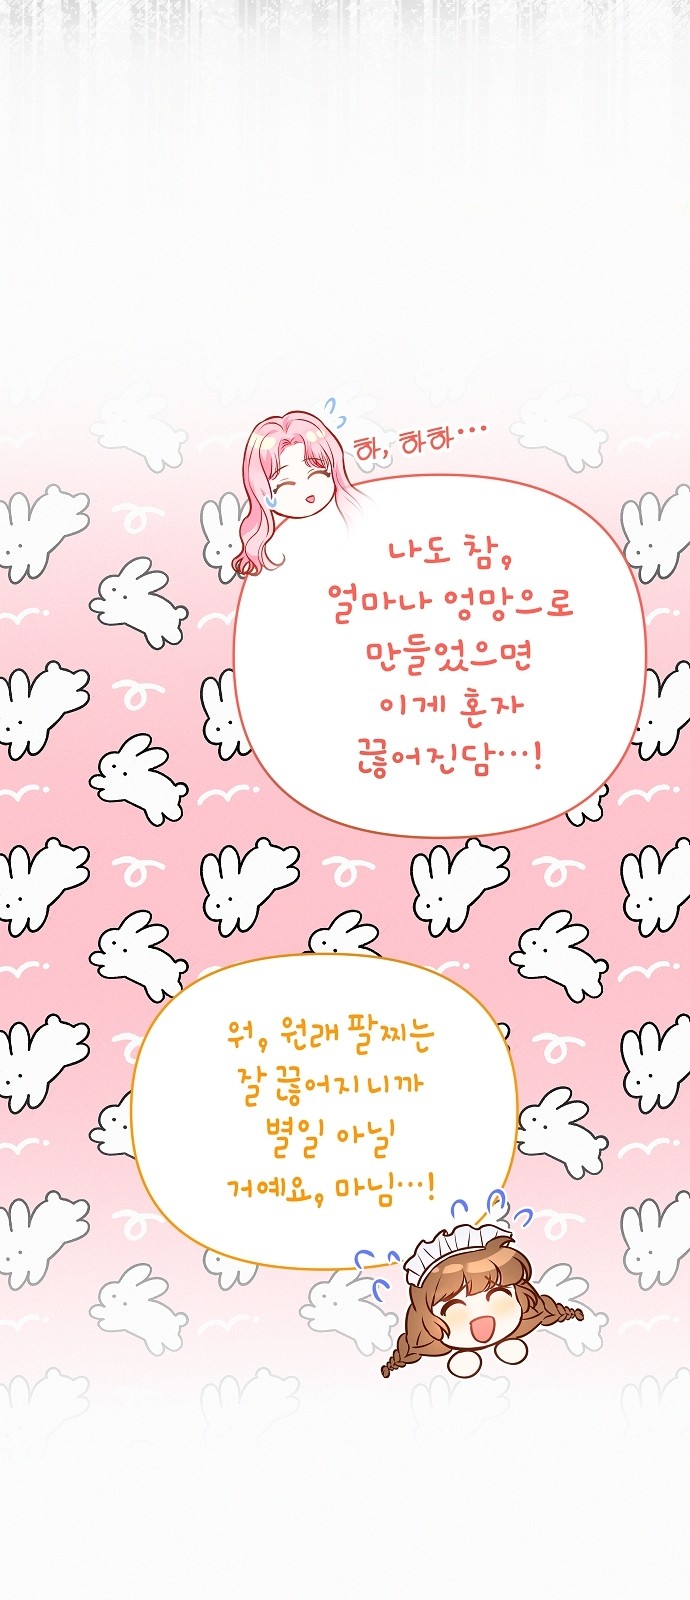 하, 하하…
나도 참,
얼마나 엉망으로
만들었으면
이게 혼자
끊어진담…!
워, 원래 팔찌는
잘 끊어지니까
별일 아닐
거예요, 마님…!